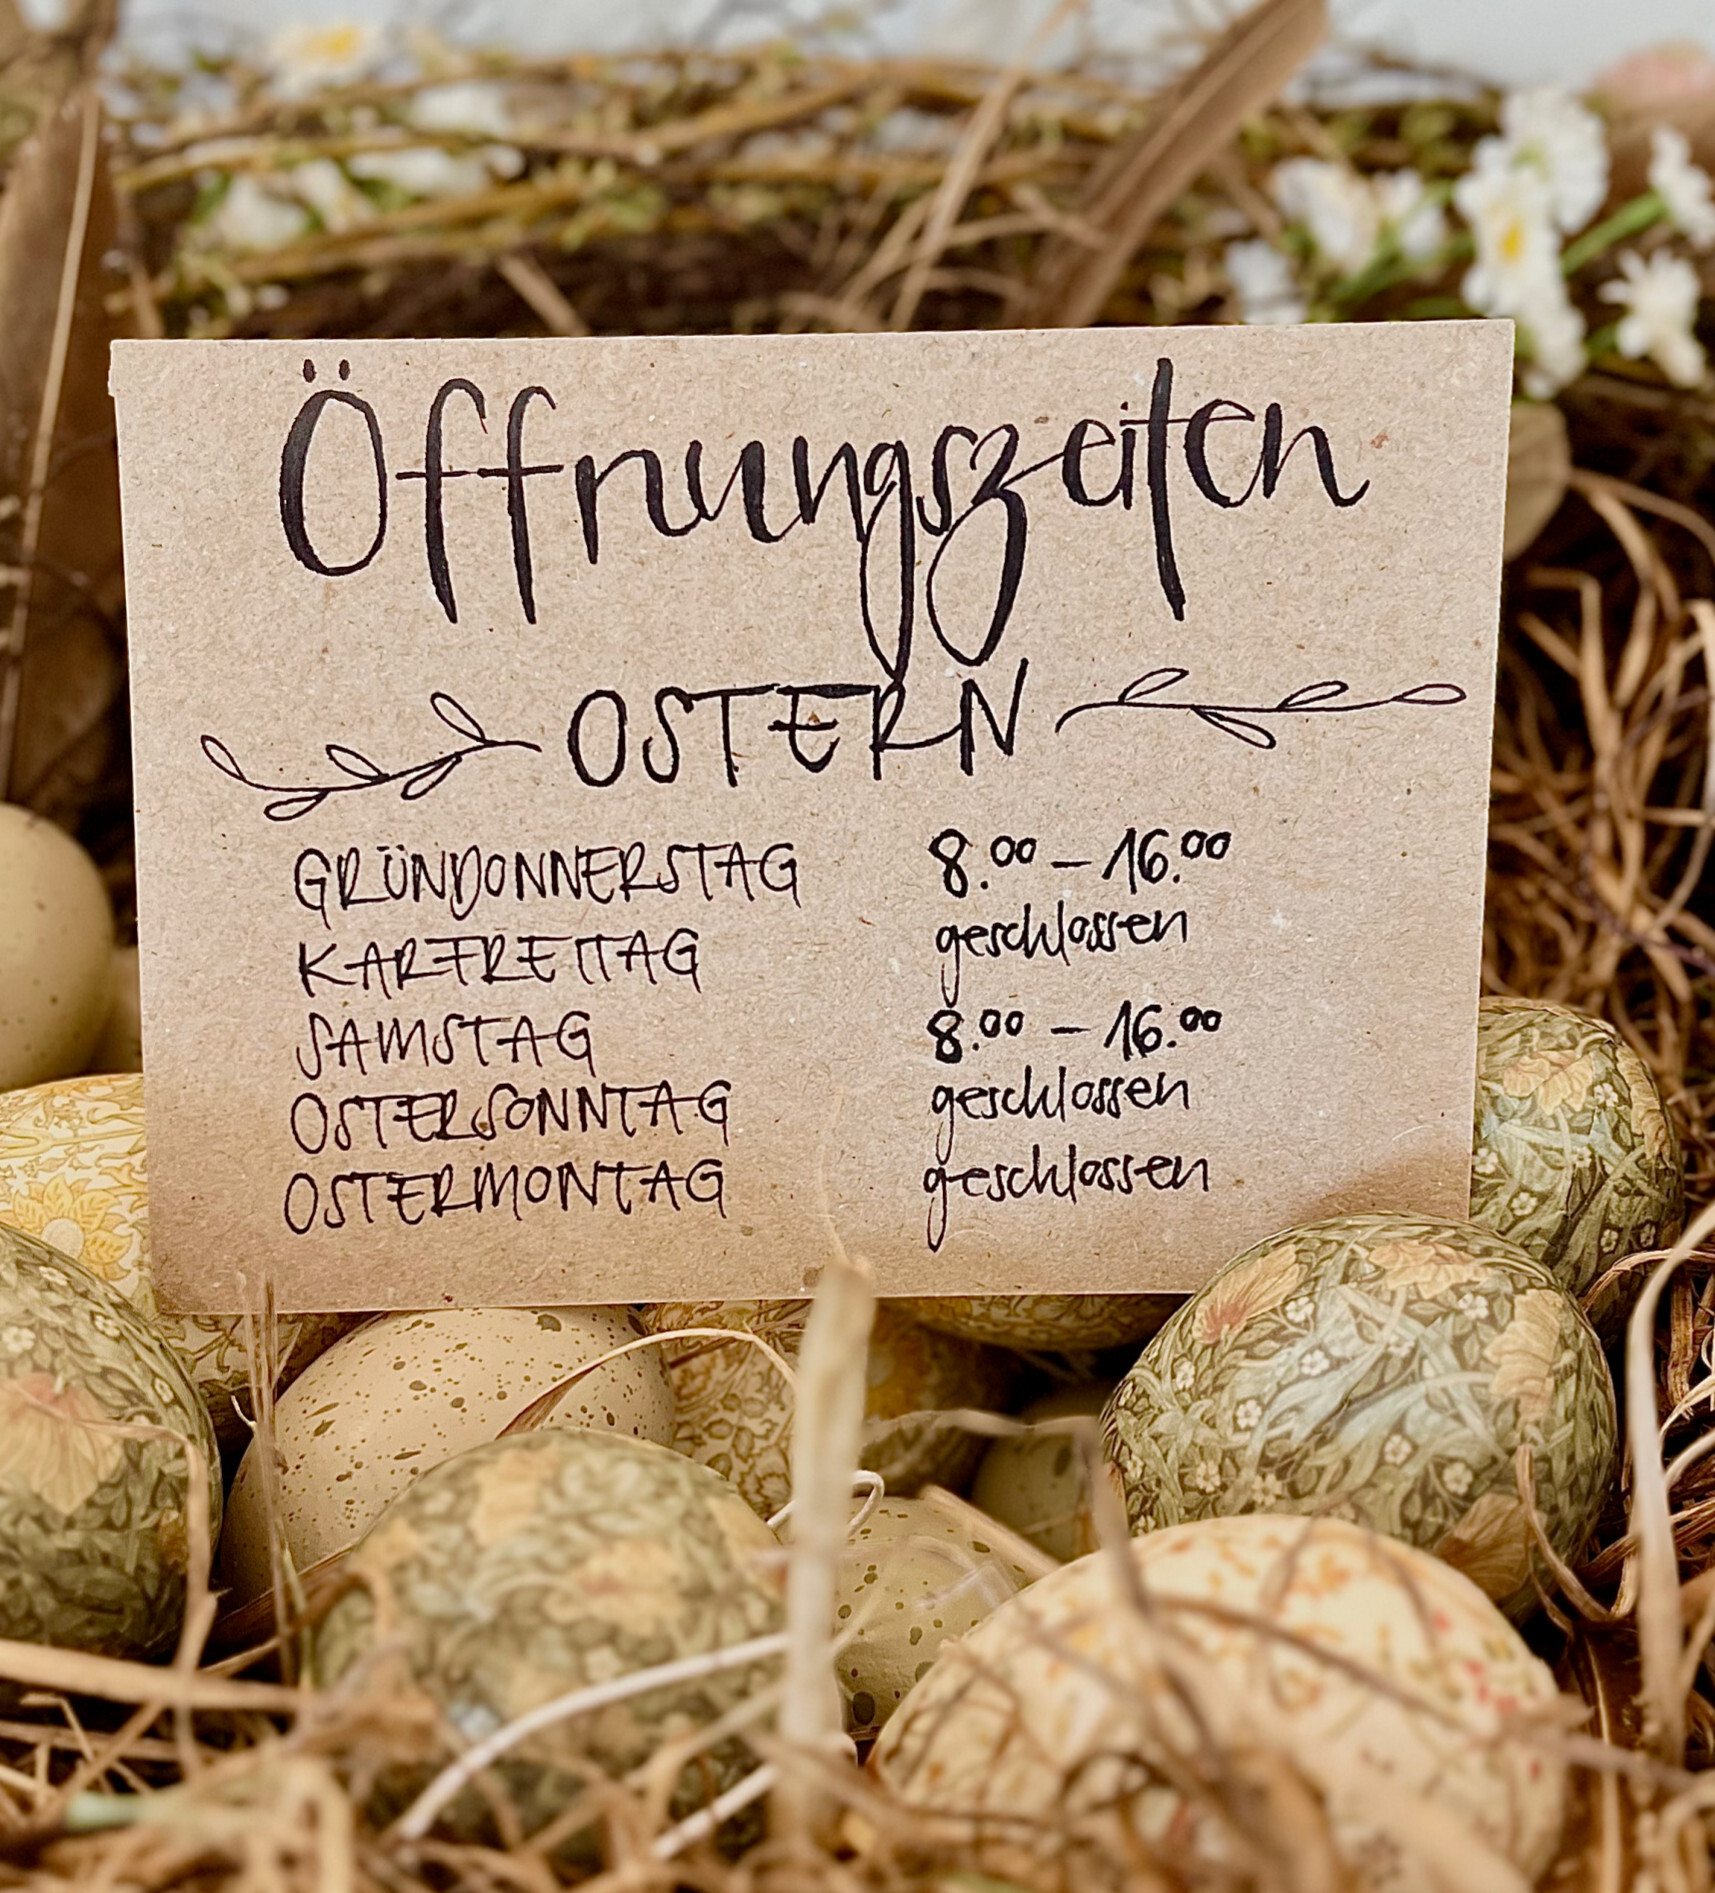 Öffnungszeiten
OSTERN
GRÜNDONNERSTAG 8.00 – 16.00
KARFREITAG geschlossen
SAMSTAG 8.00 – 16.00
OSTERSONNTAG geschlossen
OSTERMONTAG geschlossen